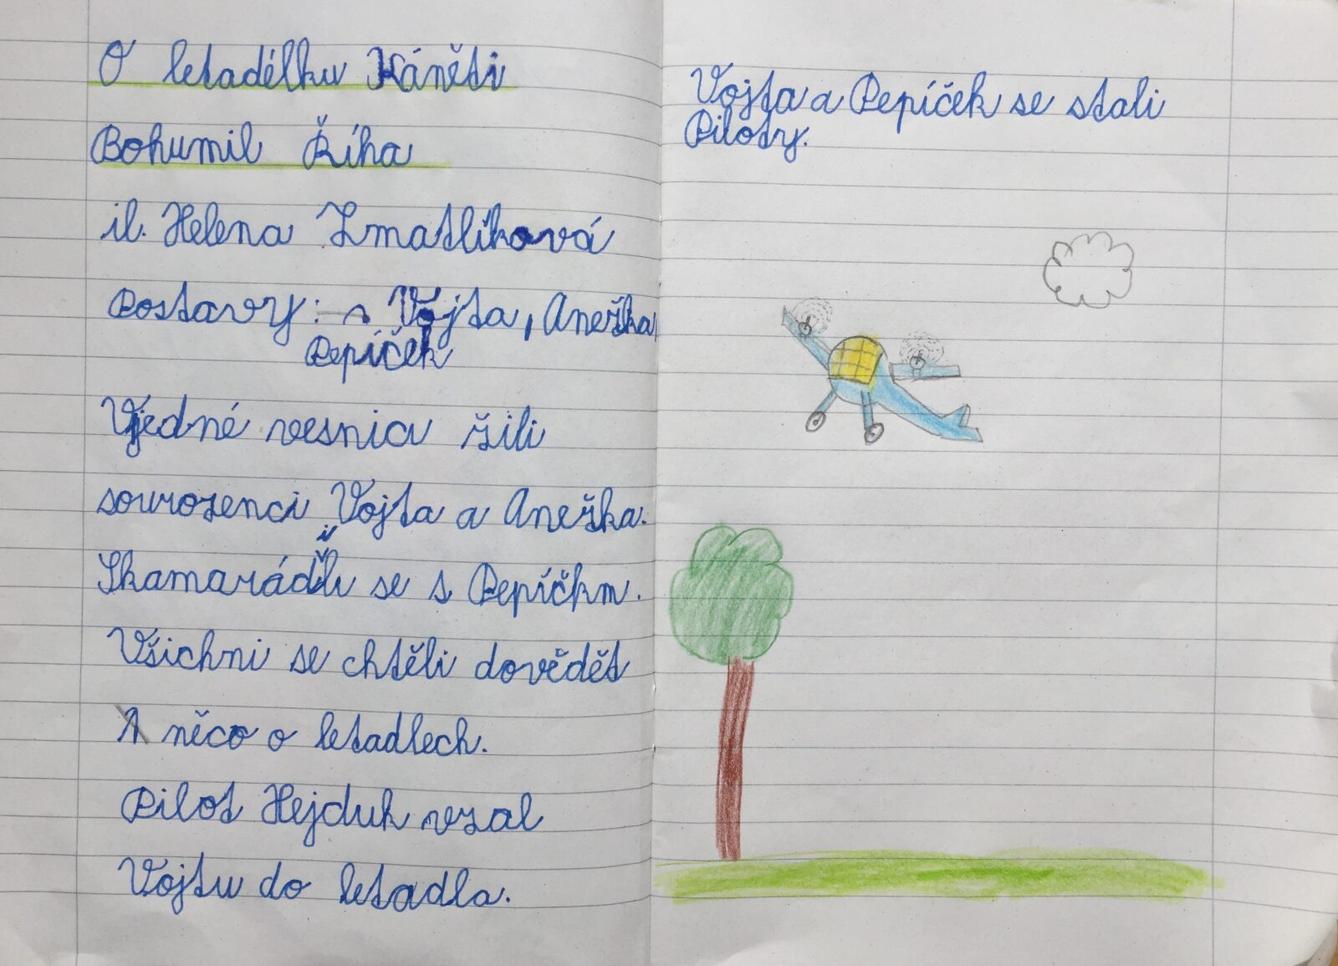 O letadélku Káněti
Bohumil Říha
il. Helena Zmatlíková
Postavy: Vojta, Anežka,
Pepíček
V jedné vesnici žili
sourozenci Vojta a Anežka.
Skamarádili se s Pepíčkm.
Všichni se chtěli dovědět
A něco o letadlech.
Pilot Hejduk vzal
Vojtu do letadla.
Vojta a Pepíček se stali
Piloty.